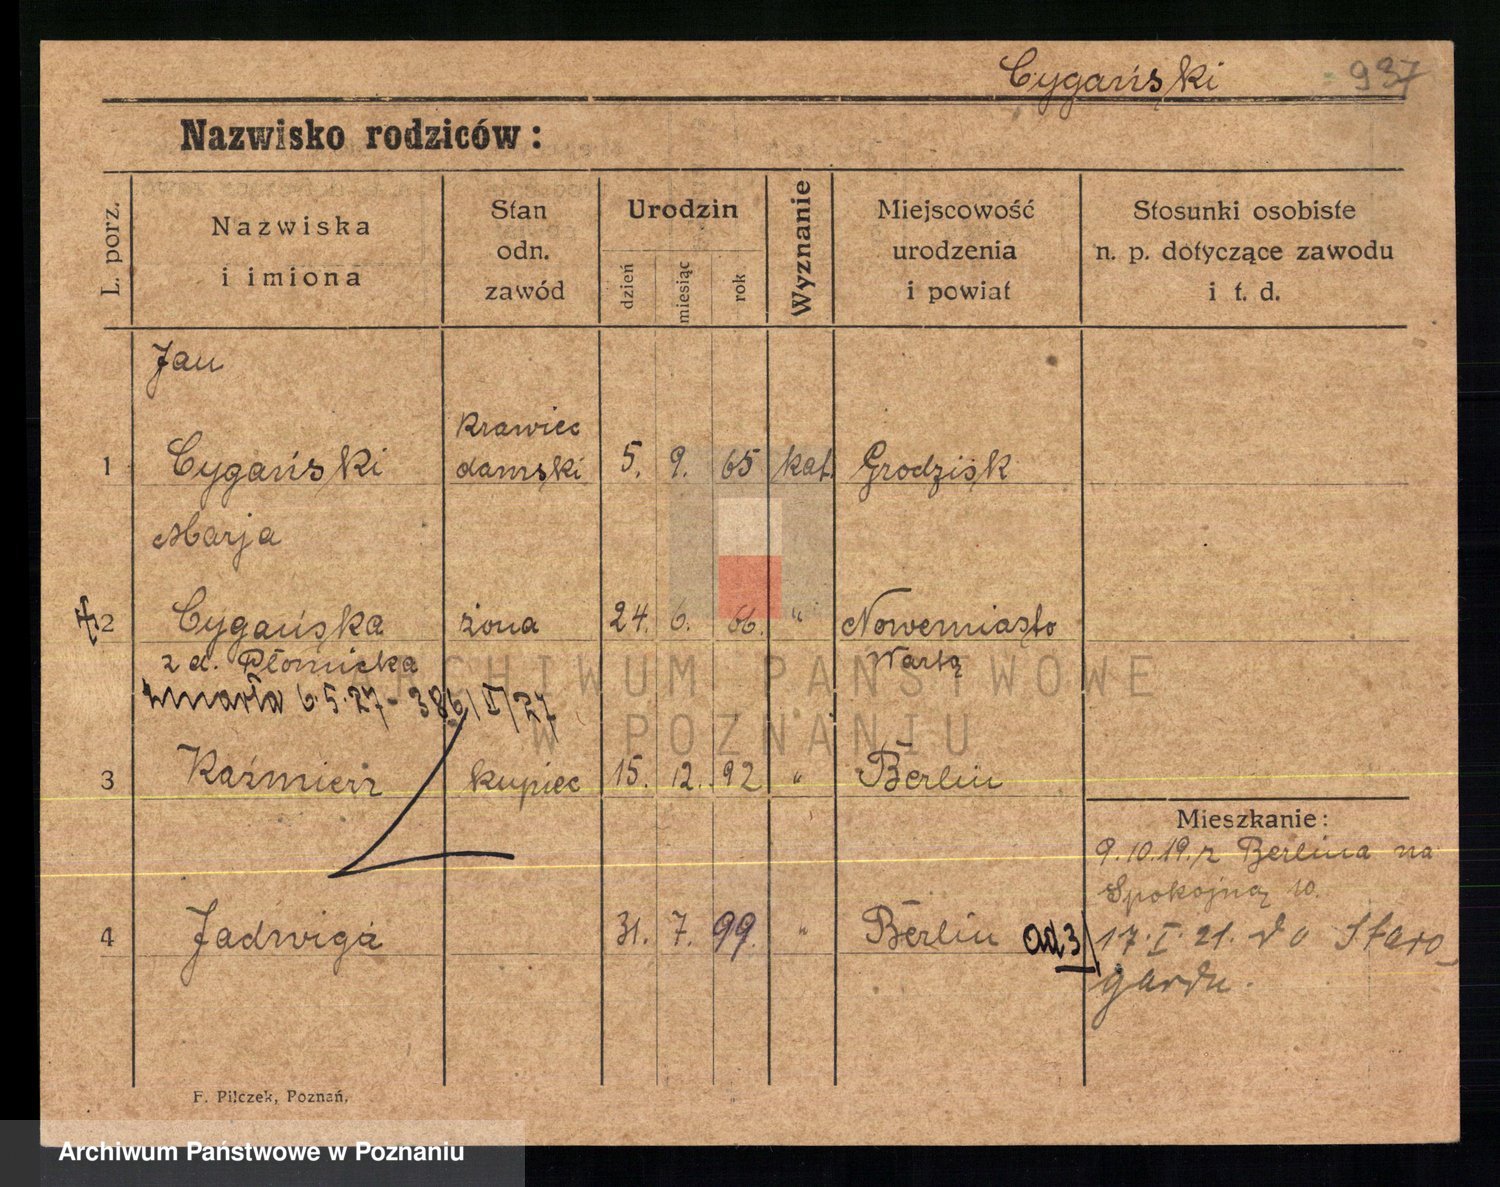 Cygański 937
Nazwisko rodziców:
L. porz.
Nazwiska
i imiona
Stan
odn.
zawód
Urodzin
dzień
miesiąc
rok
Wyznanie
Miejscowość
urodzenia
i powiat
Stosunki osobiste
n. p. dotyczące zawodu
i t. d.
Jan
krawiec
1 Cygański damski 5. 9. 65 kat. Grodzisk
Marja
2 Cygańska żona 24. 6. 66. " Nowemiasto
z d. Płomicka Wartą
zmarła 6.5.27 - 386/I/27
3 Kaźmierz kupiec 15. 12. 92 " Berlin
Mieszkanie:
9.10.19. z Berlina na
Spokojną 10.
4 Jadwiga 31. 7. 99. " Berlin ad3/ 17.I.21. do Staro-
gardu.
F. Pilczek, Poznań.
ARCHIWUM PAŃSTWOWE
W POZNANIU
Archiwum Państwowe w Poznaniu